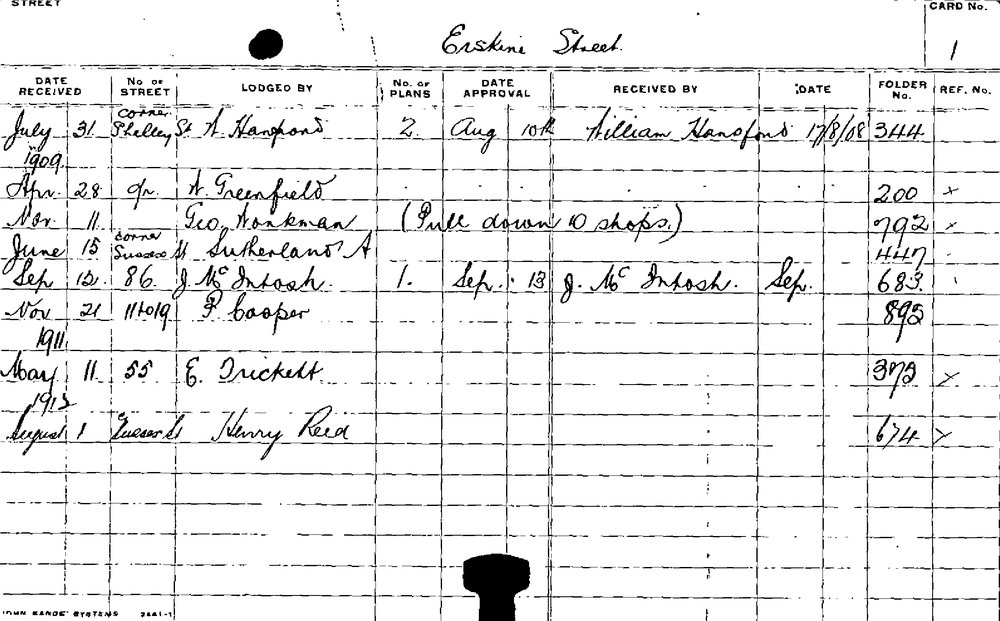 STREET
CARD No.
Erskine Street.
1
DATE RECEIVED No. OF STREET LODGED BY No. OF PLANS DATE APPROVAL RECEIVED BY DATE FOLDER No. REF. No.
July 31 corner Shelley St A. Hansford 2. Aug 10th William Hansford 17/8/08 344
1909.
Apr. 28 A. Greenfield 200 x
Nov. 11 Geo. Workman (Pull down 10 shops.) 792 x
June 15 corner Sussex St Sutherland A 447
Sep 12. 86. J. Mc Intosh. 1. Sep. 13 J. Mc Intosh. Sep. 683.
Nov 21 11to19 P. Cooper 892
1911.
May 11. 55 E. Trickett 372 x
1912
August 1 Sussex St Henry Reid 674 x
SYSTEMS